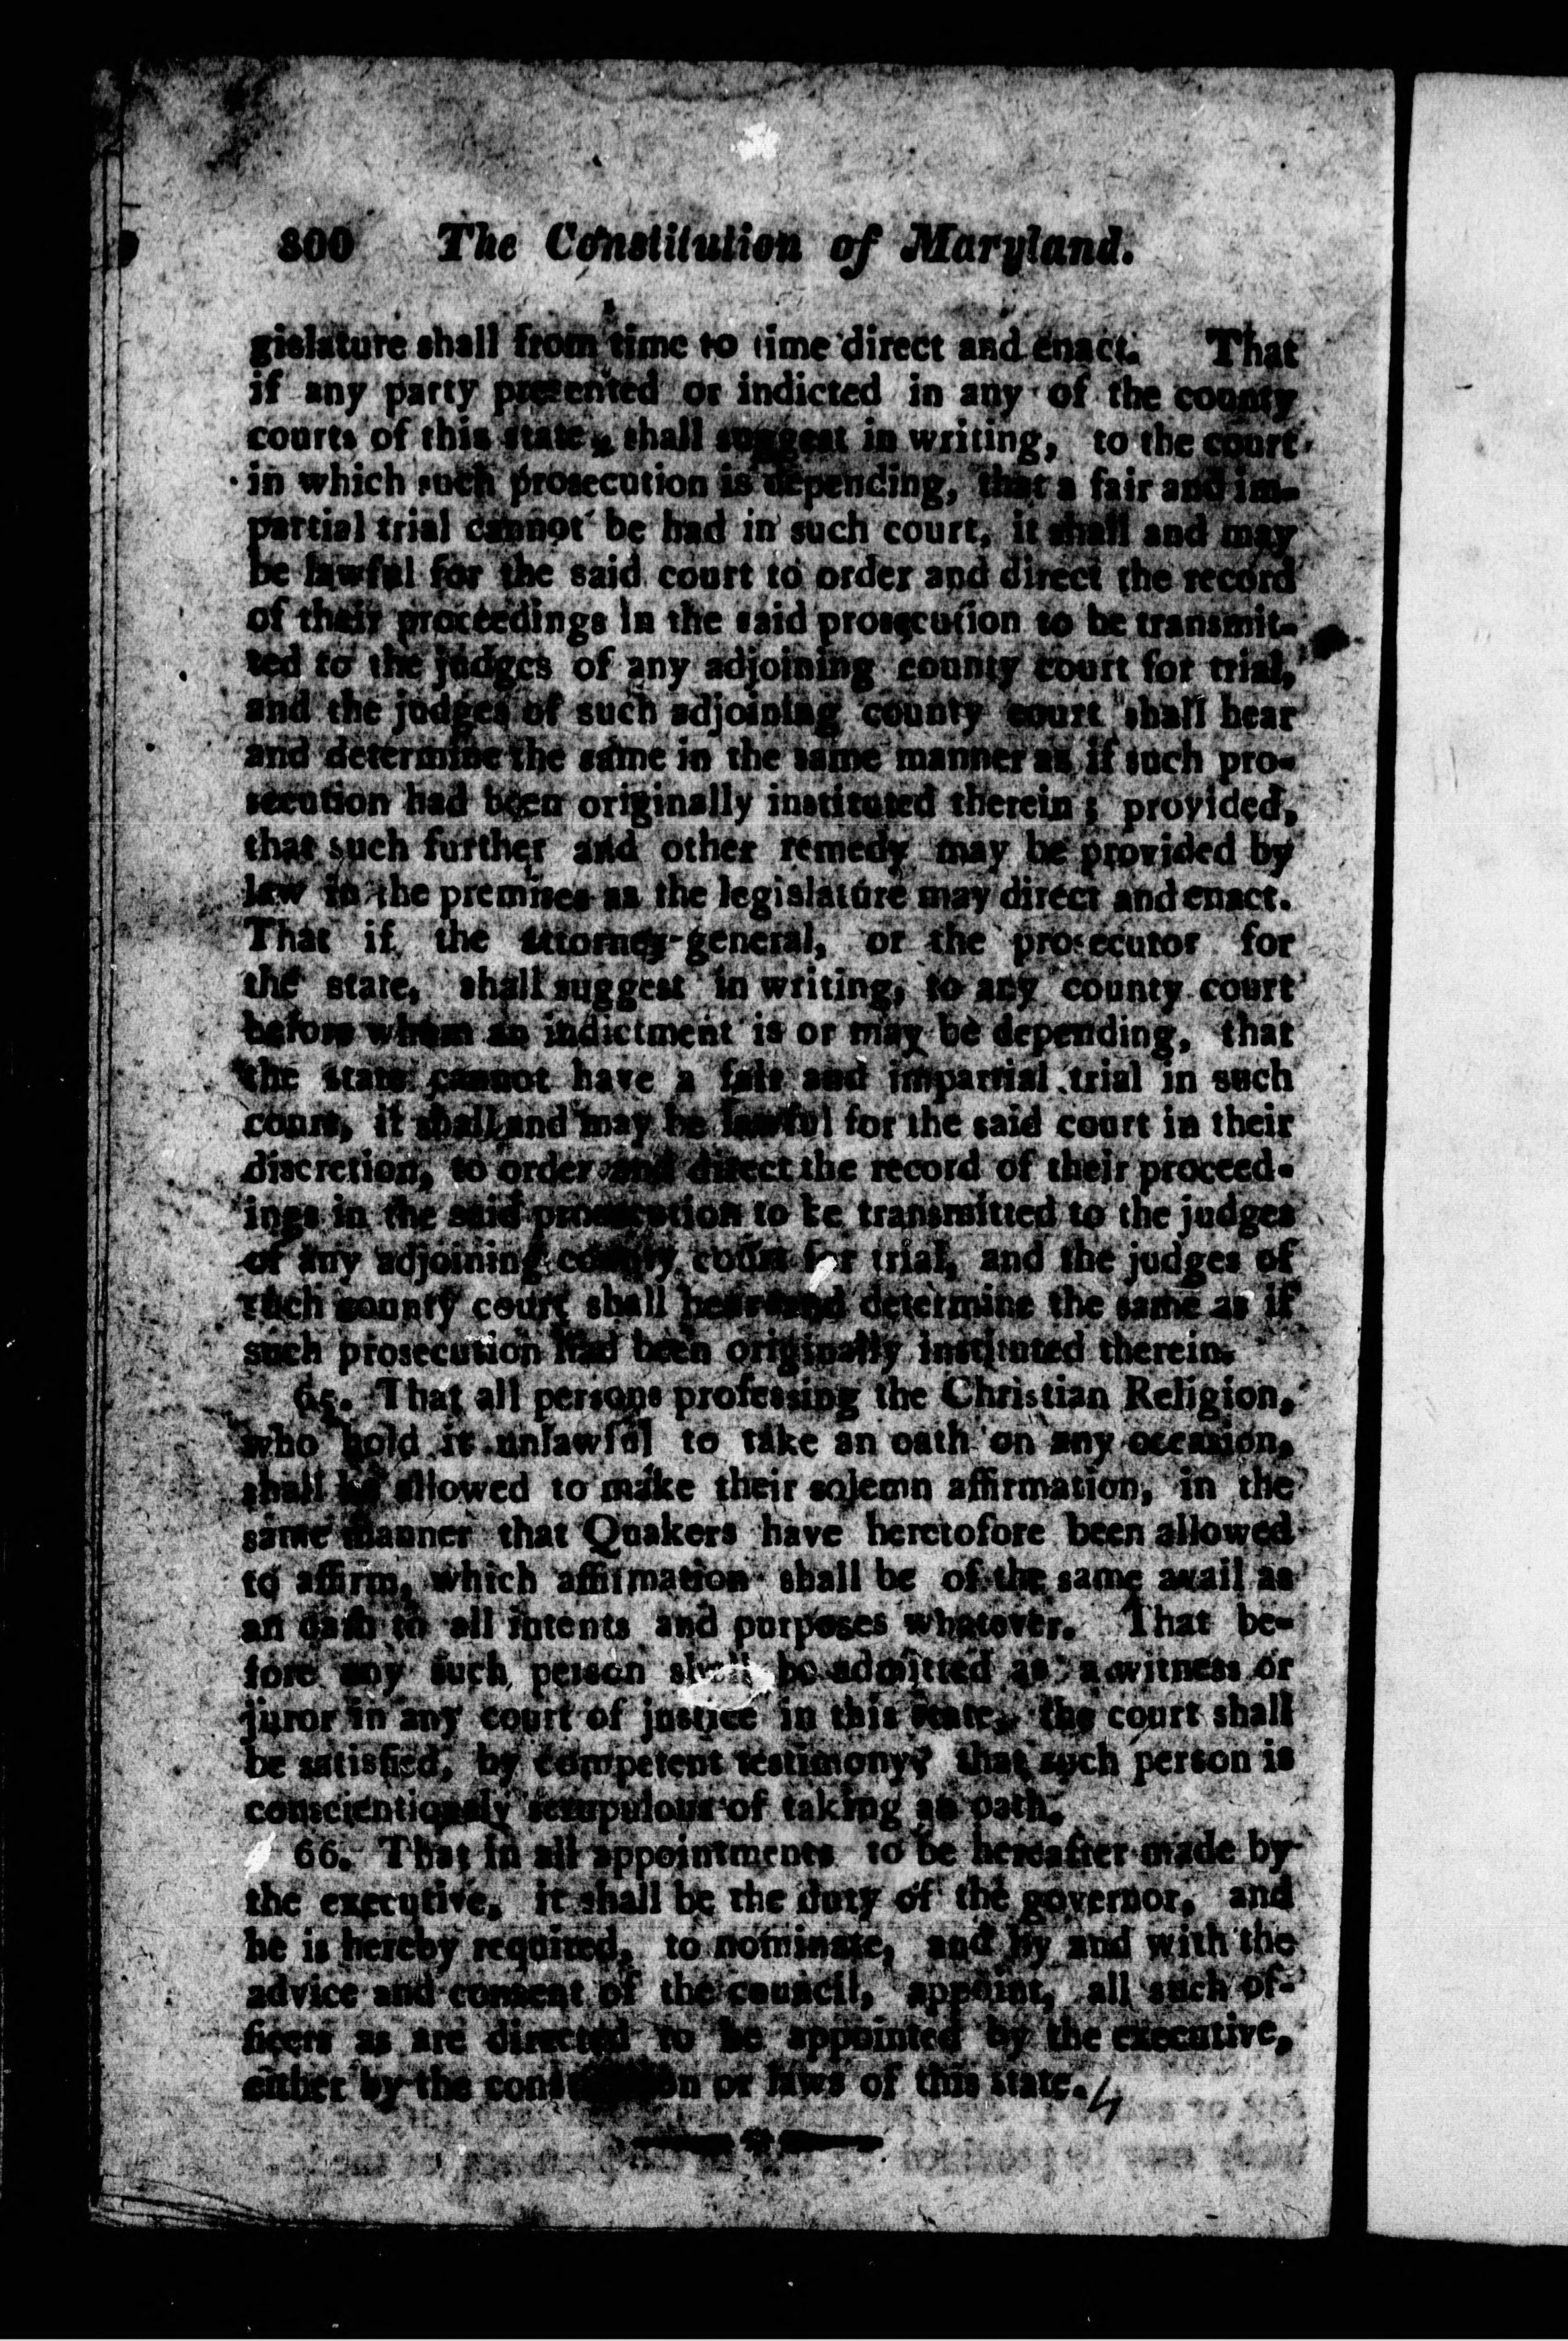 300 The Constitution of Maryland.
gislature shall from time to time direct and enact. That
if any party presented or indicted in any of the county
courts of this state, shall suggest in writing, to the court
in which such prosecution is depending, that a fair and im-
partial trial cannot be had in such court, it shall and may
be lawful for the said court to order and direct the record
of their proceedings in the said prosecution to be transmit-
ted to the judges of any adjoining county court for trial,
and the judges of such adjoining county court shall hear
and determine the same in the same manner as if such pro-
secution had been originally instituted therein; provided,
that such further and other remedy may be provided by
law in the premises as the legislature may direct and enact.
That if the attorney-general, or the prosecutor for
the state, shall suggest in writing, to any county court
before whom an indictment is or may be depending, that
the state cannot have a fair and impartial trial in such
court, it shall and may be lawful for the said court in their
discretion, to order and direct the record of their proceed-
ings in the said prosecution to be transmitted to the judges
of any adjoining county court for trial, and the judges of
such county court shall hear and determine the same as if
such prosecution had been originally instituted therein.
65. That all persons professing the Christian Religion,
who hold it unlawful to take an oath on any occasion,
shall be allowed to make their solemn affirmation, in the
same manner that Quakers have heretofore been allowed
to affirm, which affirmation shall be of the same avail as
an oath to all intents and purposes whatever. That be-
fore any such person shall be admitted as a witness or
juror in any court of justice in this state, the court shall
be satisfied, by competent testimony, that such person is
conscientiously scrupulous of taking an oath.
66. That in all appointments to be hereafter made by
the executive, it shall be the duty of the governor, and
he is hereby required, to nominate, and by and with the
advice and consent of the council, appoint, all such of-
ficers as are directed to be appointed by the executive,
either by the constitution or laws of this state.